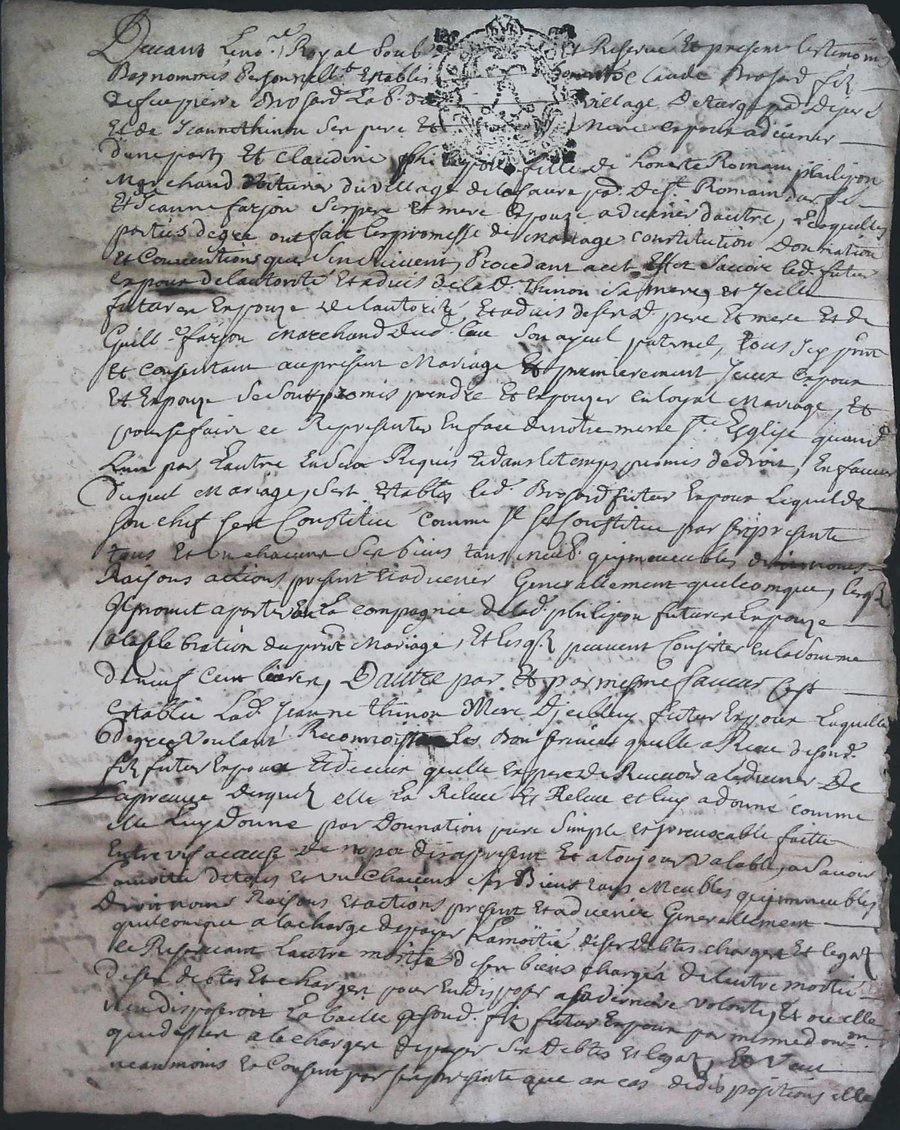 Devant Le no.re Royal soub.né Reservé Et present les temoins
Bas nommés Personnellem.t Establis Claude Brosard fils
de feu pierre Brosard Lab.r du village De
Et de Jeanne thinon Ses pere Et mere Espoux aduenir
d'une part, Et Claudine philipon fille de honeste Romain philipon
Marchand Voiturier du village de la faure p.sse De St Romain
Et Jeanne farjon Ses pere Et mere Espouze aduenir d'autre, Lesquelles
parties de gré ont fait Les promesse de Mariage constitution Donnation
Et Conventions que S'en suivent, Procedant a cet Effet Sauoir led. futur
Espoux de l'autorité Et aduis de lad. Thinon Sa mere, et Jcelle
future Enpouze de l'autorité, Et aduis de sesd. pere Et mere Et de
Guill.e farjon Marchand dud. lieu Son ayeul paternel, tous Jcy p.nt
Et Consentant au present Mariage Et premierement Jceux Espoux
Et Enpouze Se Sont promis prendre Et Enpouzer en loyal Mariage, Et
pour se faire ce Representer En face de notre mere S.te Esglise quand
Lun par Lautre En Sera Requis Et dans le temps permis de droit, En faueur
Duquel Mariage, S'est Estably led. Brosard futur Enpoux Lequel de
Son chef sest Constitué comme Jl Se Constitue par Ses presente
tous Et vn chacuns Ses biens tans meub. qu'immeubles droits noms
Raisons actions present Et aduenir Generallement quelconque, lesq.ls
Jl promet aporter En La compagnie de lad. philipon future Enpouze
a la Celebration du pnt Mariage, Et lesq.ls peuuent Consister En la Somme
de neuf Cent liures, D'autre par Et par mesme faueur Cest
Establie Lad. Jeanne thinon Mere D'jcelluy futur Enpoux Laquelle
de gré Voulant Reconnoistre Les Bons seruices quelle a Receu de sond.
fils futur Enpoux Et de ceux quelle Enpere de Receuoir a Laduenir De
La preuue Desquels elle La Releué Et Releue et luy a donné comme
elle Luy Donne par Donnation pure Simple et jrreuocable faitte
Entre vifs a cause de nopce dis a present Et a toujour Valable, a Sauoir
La moitié de tous et vn Chacuns Ses Biens tans Meubles qu'jmmeubles
Droits noms Raisons et actions present Et aduenir Generallement
quelconque a la charge de payer La moitié de ses Debtes charges Et legats
ce Reseruant Lautre moitié de ses biens chargés de lautre moitié
de ses debtes Et charges pour En disposer a Sa derniere Volonté, Et ou elle
n'en disposeroit La baille a sond. fils futur Enpoux par mesme donnon.
que dessus a la charge de payer Ses Debtes Et legats, Et Veut
neanmoins Et Consent par Ses presente que an cas de dispositions elle